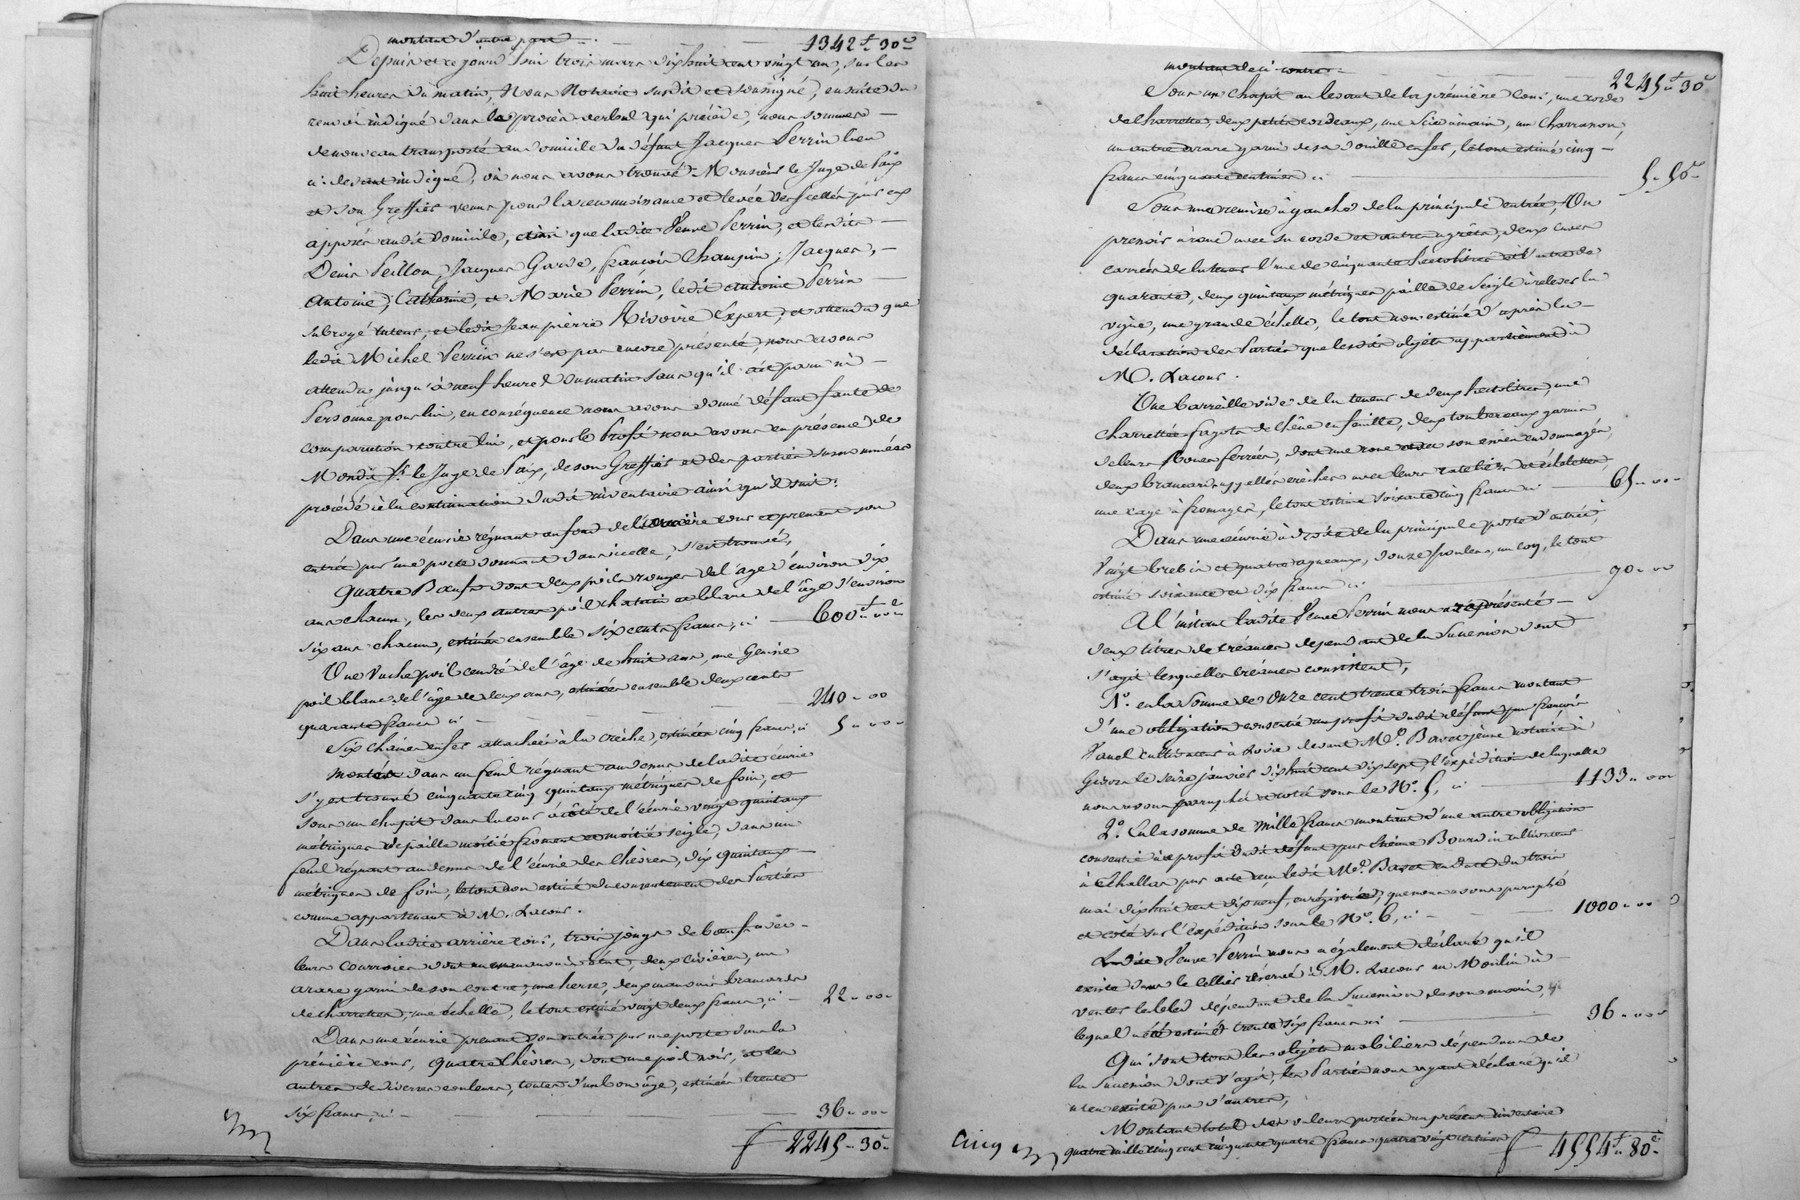 montant d'autre part 1342f 30c
Depuis et ce jourd'hui trois mars dix huit cent vingt un, sur les
huit heures du matin, Nous Notaire susdit et soussigné, en suite du
renvoi indiqué dans le procès verbal qui précède, nous sommes
de nouveau transporté au domicile du défunt Jacques Perrin lieu
ci-devant indiqué, où nous avons trouvé Monsieur le Juge de Paix
et son Greffier venus pour la reconnaissance et levée des scellés par eux
apposés audit domicile, ainsi que ladite Veuve Perrin, et lesdits
Denis Peillon, Jacques Garde, françois Champin, Jacques,
Antoine, Catherine, et Marie Perrin, ledit antoine Perrin
subrogé tuteur, et ledit Jean pierre Rivoire Expert, et attendu que
ledit Michel Perrin ne s'est pas encore présenté, nous avons
attendu jusqu'à neuf heures du matin sans qu'il ait paru ni
Personne pour lui, en conséquence nous avons donné défaut faute de
comparution contre lui, et pour le Profit nous avons en présence de
Mondit Sr. le Juge de Paix, de son Greffier et des parties susnommées
procédé à la continuation dudit inventaire ainsi qu'il suit.
Dans une écurie régnant au fond de l'arrière cour et prenant son
entrée par une porte donnant dans icelle, s'est trouvé,
Quatre Bœufs dont deux poils rouges de l'âge d'environ dix
ans chacun, les deux autres poil chatain et blanc de l'âge d'environ
six ans chacun, estimés ensemble six cents francs, ci 600f 00c
Une Vache poil cendré de l'âge de huit ans, une Genisse
poil blanc de l'âge de deux ans, estimées ensemble deux cents
quarante francs ci 240 00
Six chaines en fer attachées à la crèche, estimées cinq francs, ci 5 00
Montés dans un fenil régnant au dessus de ladite écurie
s'y est trouvé cinquante cinq quintaux métriques de foin, et
sous un chapit dans la cour à côté de l'écurie vingt quintaux
métriques de paille moitié froment et moitié seigle, dans un
fenil régnant au dessus de l'écurie des chèvres, dix quintaux
métriques de foin, le tout non estimé du consentement des Parties
comme appartenant à M. Lacour.
Dans ladite arrière cour, trois jougs de bœufs avec
leurs courroies deux civières, un
arare garni de son une herse, deux mauvais brancards
de charrettes, une échelle, le tout estimé vingt deux francs, ci 22 00
Dans une écurie prenant son entrée par une porte dans la
première cour, quatre chèvres, dont une poil noir, et les
autres de diverses couleurs, toutes d'un bon âge, estimées trente
six francs, ci 36 00
f 2245 30c
montant de ci contre 2245f 30c
Sous un chapit au levant de la première cour, une corde
de charrette, deux petits cordeaux, une Scie à main, un Charranon,
un autre arare garni de sa douille en fer, le tout estimé cinq
francs cinquante centimes ci 5 50c
Sous une remise à gauche de la principale entrée, Un
pressoir à roue avec sa corde et autres agrêts, deux cuves
carrées de la l'une de cinquante hectolitres et l'autre de
quarante, deux quintaux métriques paille de Seigle à relever la
vigne, une grande échelle, le tout non estimé d'après la
déclaration des Parties que lesdits objets appartiennent à
M. Lacour.
Une barreille vide de la teneur de deux hectolitres, une
charretée fagots de chêne en feuille, deux tombereaux garnis
de leurs Roues ferrées, dont une roue et son essieu endommagés,
deux brancards, crèches avec leurs rateliers
une cage à fromages, le tout estimé soixante cinq francs ci 65 00
Dans une écurie à droite de la principale porte d'entrée,
Vingt brebis et quatre agneaux, douze poules, un coq, le tout
estimé soixante et dix francs ci 70 00
A l'instant ladite Veuve Perrin nous a représenté
deux titres de créances dépendant de la Succession dont
s'agit lesquelles créances consistent,
1o. en la Somme de Onze cent trente trois francs montant
d'une obligation consentie au profit dudit défunt par françois
Vanel cultivateur à Loire devant Me. Baret jeune notaire à
Givors le seize janvier dix huit cent dix sept, l'expédition de laquelle
nous avons paraphé et coté sous le No. 5, ci 1133 00
2o. En la somme de Mille francs montant d'une autre obligation
consentie au profit dudit défunt par Bourdin cultivateur
à Echallas par acte reçu ledit Me. Baret en date du trois
mai dix huit cent dix neuf, enrégistré, que nous avons paraphé
et coté sur l'expédition sous le No. 6, ci 1000 00
Ladite Veuve Perrin nous a également déclaré qu'il
existe dans le cellier réservé à M. Lacour au Moulin à
venter le bled dépendant de la Succession de son mari,
lequel a été estimé trente six francs ci 36 00
Qui sont tous les objets mobiliers dépendans de
la Succession dont s'agit, les Parties nous ayant déclaré qu'il
n'en existe pas d'autres,
Montant total des valeurs portées au présent inventaire
quatre mille cinq cent cinquante quatre francs quatre vingt centimes f 4554f 80c
Cinq